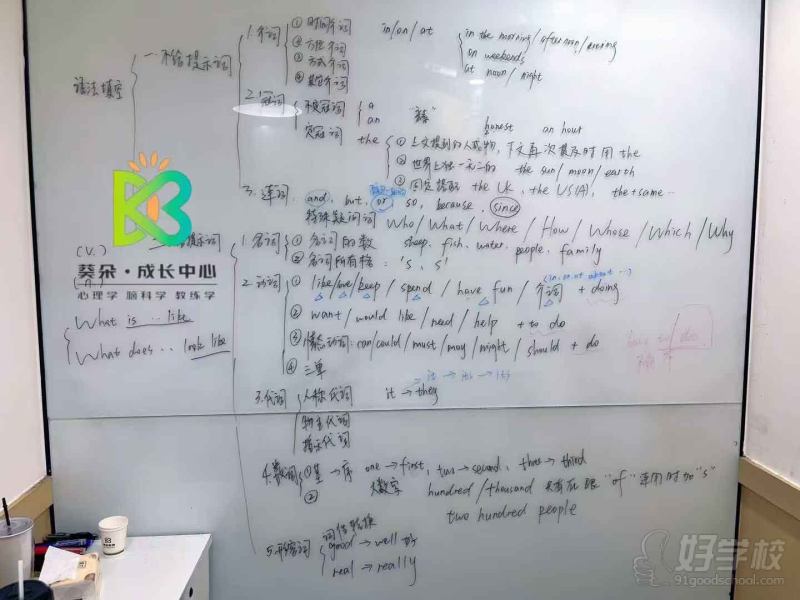 语法填空
一. 不给提示词
1. 介词
① 时间介词 in/on/at
in the morning/afternoon/evening
on weekends
at noon/night
② 方位介词
③ 方式介词
④ 其它介词
2. 冠词
不定冠词 a
an
honest an hour
定冠词 the
① 上文提到的人或物,下文再次提及时用 the
② 世界上独一无二的 the sun/moon/earth
③ 固定搭配 the UK, the US(A), the+same…
3. 连词 and, but, or, so, because, since
特殊疑问词 Who/What/Where/How/Whose/Which/Why
提示词
1. 名词
① 名词的数 sheep, fish, water, people, family
② 名词所有格: 's, s'
2. 动词
① like/love/keep/spend/have fun/介词 + doing
② want/would like/need/help + to do
③ 情态动词: can/could/must/may/might/should + do
④ 三单
it → its → it's
3. 代词
人称代词 it → they
物主代词
指示代词
4. 数词
① 基→序 one→first, two→second, three→third
② 大数字 hundred/thousand 只有在跟"of"连用时加"s"
two hundred people
5. 形容词
词性转换
good → well 好
real → really
(V.)
What is … like
What does … look like
葵朵·成长中心
心理学 脑科学 教练学
好学校
91goodschool.com